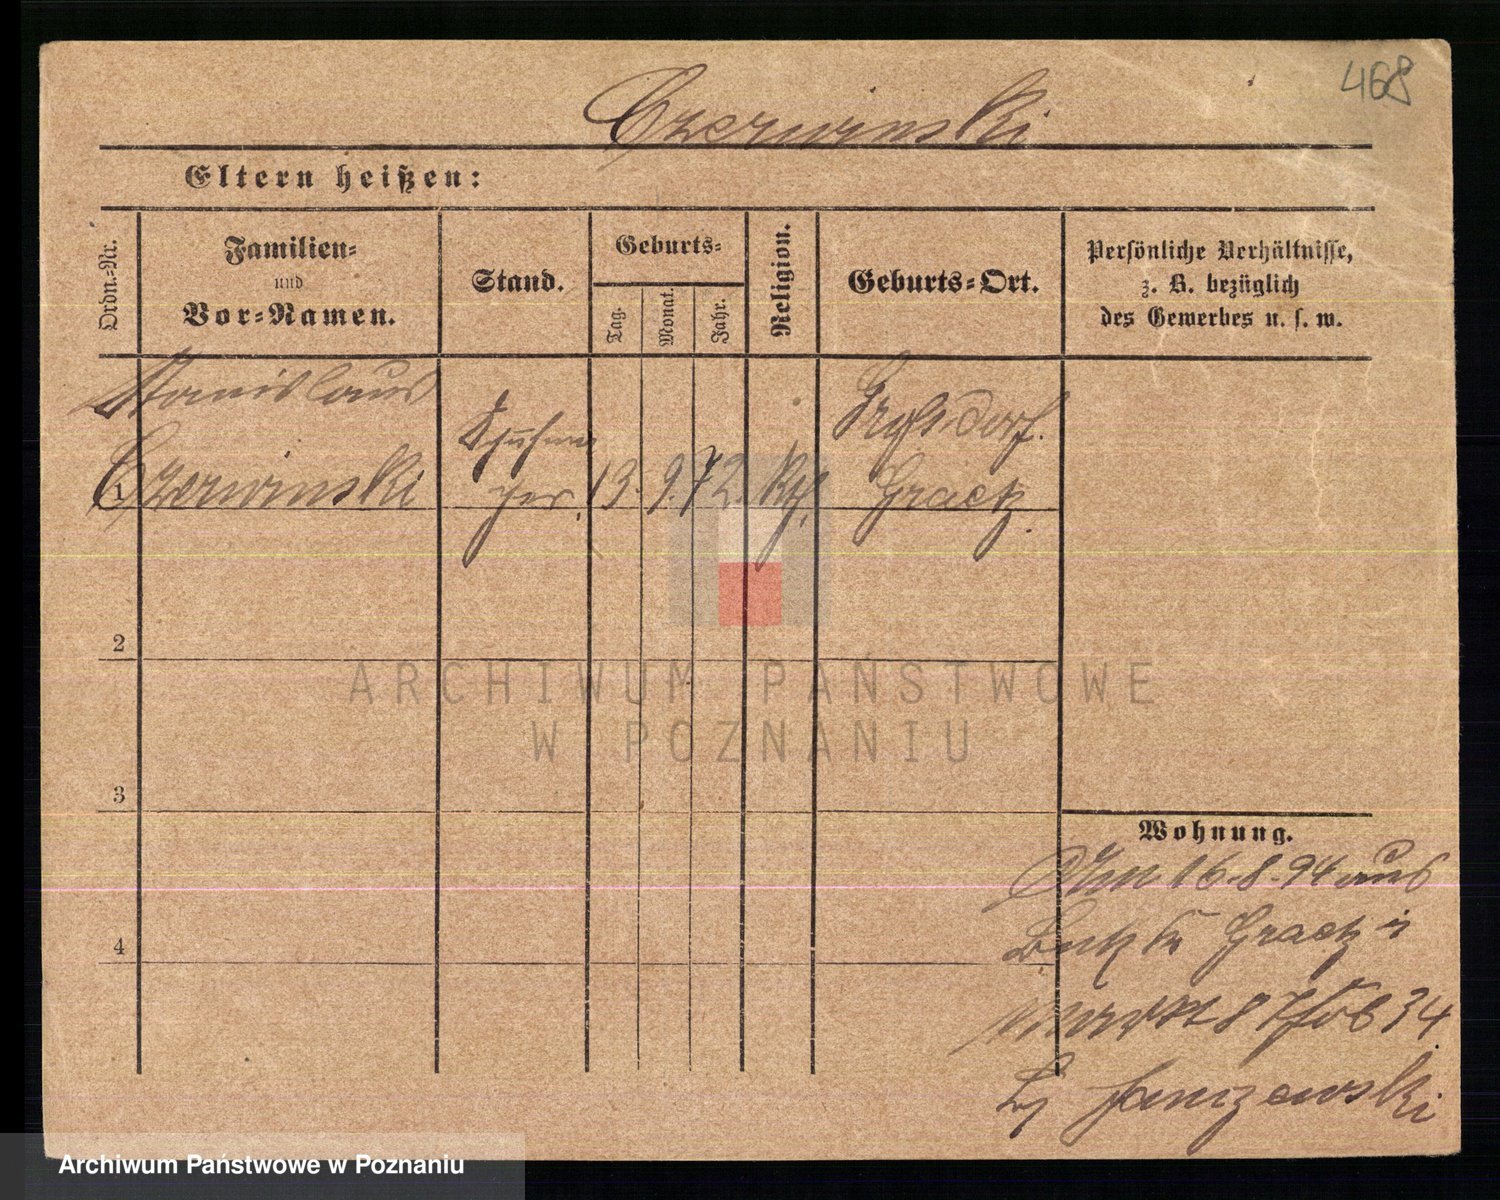 468
Czerwinski
Eltern heißen:
Ordn.-Nr.
Familien-
und
Vor-Namen.
Stand.
Geburts-
Tag.
Monat.
Jahr.
Religion.
Geburts-Ort.
Persönliche Verhältnisse,
z. B. bezüglich
des Gewerbes u. s. w.
Stanislaus
Czerwinski
1
Schuhma
cher.
13.
9.
72.
Kth.
Graetz.
2
3
4
Wohnung.
16.8.94 aus
Graetz
34
Janizewski
ARCHIWUM PAŃSTWOWE
W POZNANIU
Archiwum Państwowe w Poznaniu